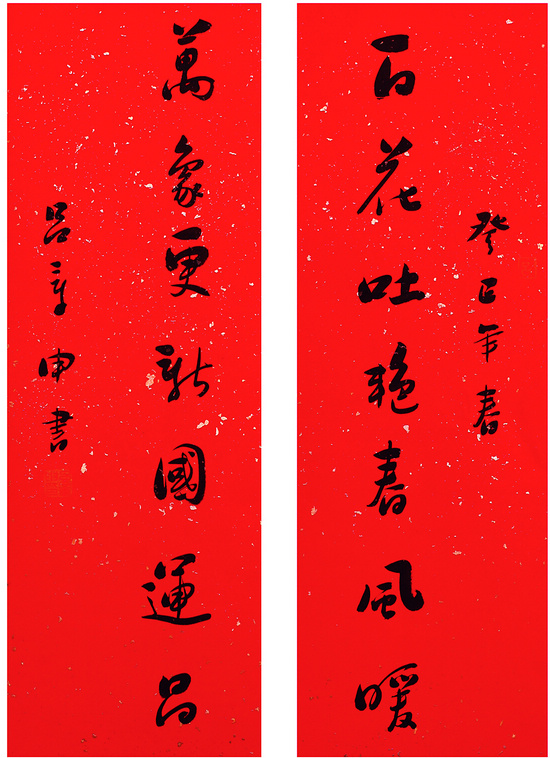 癸巳年春
百花吐艳春風暖
萬象更新國運昌
吕章申書